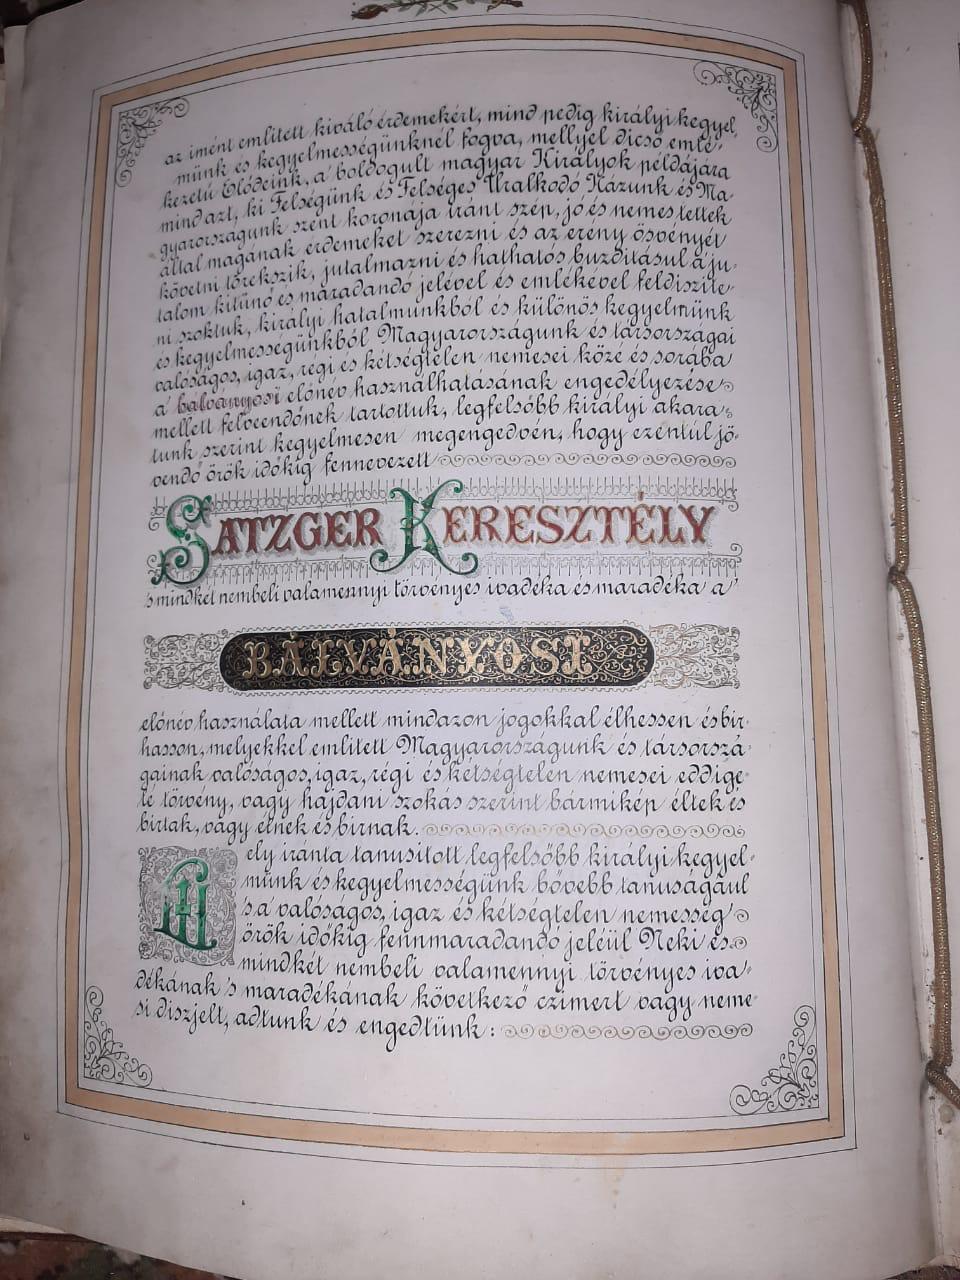 az imént említett kiváló érdemekért, mind pedig királyi kegyel,
münk és kegyelmességünknél fogva, mellyel dicső emlé,
kezetű Elődeink, a' boldogult magyar Királyok példájára
mind azt, ki Felségünk és Felséges Uralkodó Házunk és Ma,
gyarországunk szent koronája iránt szép, jó és nemes tettek
által magának érdemeket szerezni és az erény ösvényét
követni törekszik, jutalmazni és hathatós buzdításul a ju,
talom kitünő és maradandó jelével és emlékével feldiszíte,
ni szoktuk, királyi hatalmunkból és különös kegyelmünk
és kegyelmességünkből Magyarországunk és társországai
valóságos, igaz, régi és kétségtelen nemesei közé és sorába
a' balványosi előnév használhatásának engedélyezése
mellett felveendőnek tartottuk, legfelsőbb királyi akara,
tunk szerint kegyelmesen megengedvén, hogy ezentúl jö,
vendő örök időkig fennevezett
SATZGER KERESZTÉLY
's mindkét nembeli valamennyi törvényes ivadéka és maradéka a'
BÁLVÁNYOSI
előnév használata mellett mindazon jogokkal élhessen és bir,
hasson, melyekkel említett Magyarországunk és társorszá,
gainak valóságos, igaz, régi és kétségtelen nemesei eddige,
lé törvény, vagy hajdani szokás szerint bármikép éltek és
birtak, vagy élnek és birnak.
Mely iránta tanusított legfelsőbb királyi kegyel,
münk és kegyelmességünk bővebb tanuságául
's a' valóságos, igaz és kétségtelen nemesség
örök időkig fennmaradandó jeléül Neki és
mindkét nembeli valamennyi törvényes iva,
dékának 's maradékának következő czímert vagy neme,
si díszjelt, adtunk és engedtünk: